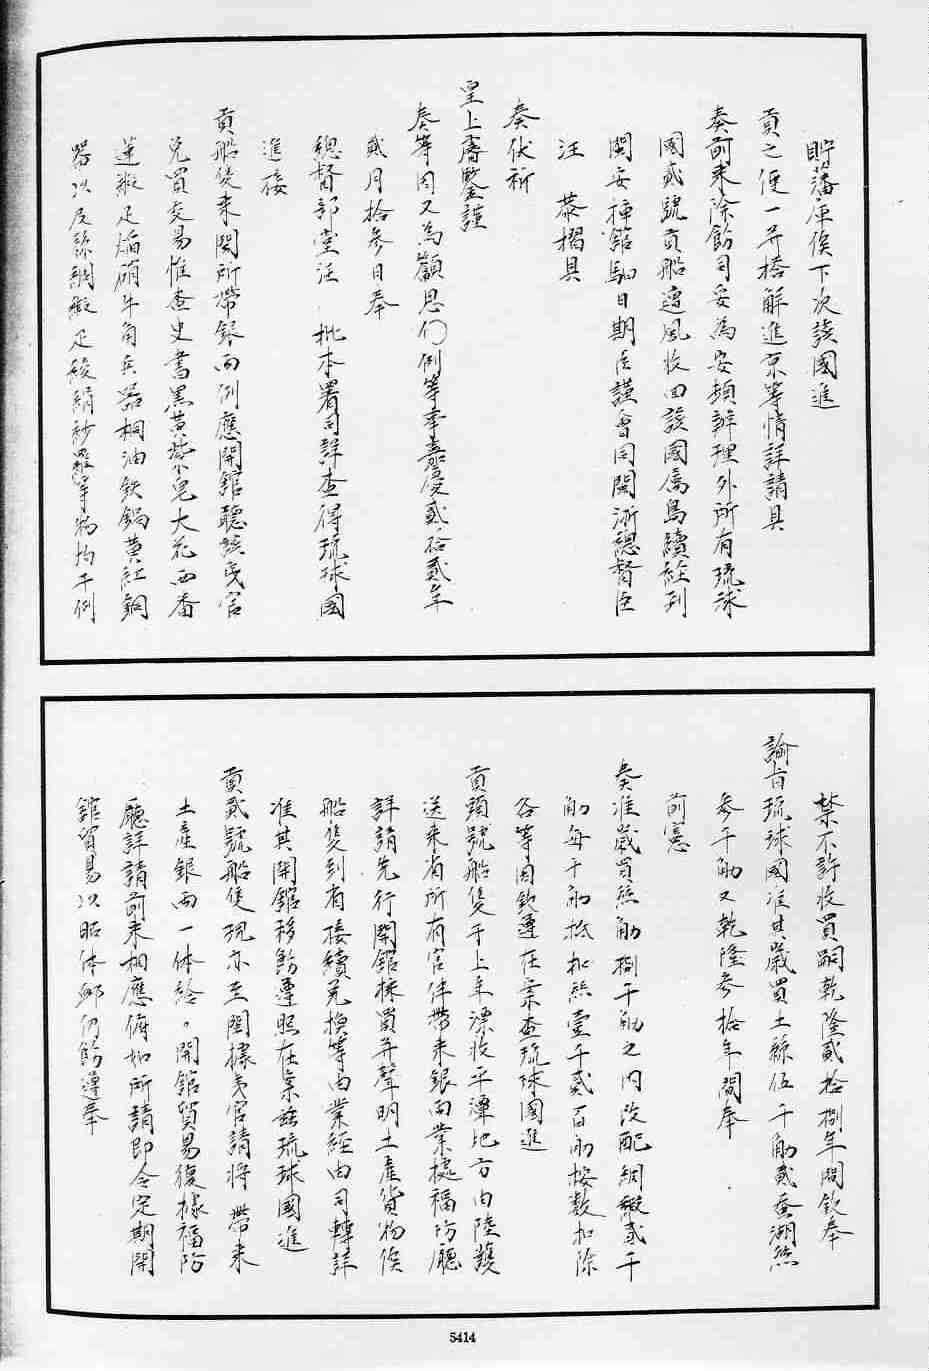 貯藩庫俟下次該國進
貢之便一并搭解進京等情詳請具
奏前來除飭司妥為安頓辦理外所有琉球
國貳號貢船遭風收回該國屬島續經到
閩安揷館馹日期臣謹會同閩浙總督臣
汪　恭摺具
奏伏祈
皇上睿鑒謹
奏等因又為籲恩仍例等事嘉慶貳拾貳年
貳月拾參日奉
總督部堂汪　批本署司詳查得琉球國
進接
貢船隻來閩所帶銀兩例應開館聽該夷官
兌買交易惟查史書黑黃紫皂大花西番
蓮緞疋焔硝牛角兵器桐油鉄鍋黃紅銅
器以及絲綢緞疋綾絹紗羅等物均干例
禁不許收買嗣乾隆貳拾捌年間欽奉
諭旨琉球國准其歲買土絲伍千觔貳蚕湖絲
參千觔又乾隆參拾年間奉
前憲
奏准歲買絲觔捌千觔之內改配綢緞貳千
觔每千觔抵扯絲壹千貳百觔按数扣除
各等因欽遵在案查琉球國進
貢頭號船隻于上年漂收平潭地方由陸護
送來省所有官伴帶來銀兩業據福防廳
詳請先行開館採買并聲明土產貨物俟
船隻到省接續兌換等由業經由司轉詳
准其開館移飭遵照在案茲琉球國進
貢貳號船隻現亦至閩據夷官請將帶來
土產銀兩一体給。開館貿易復據福防
廳詳請前來相應俯如所請即令定期開
館貿易以昭体卹仍飭遵奉
5414